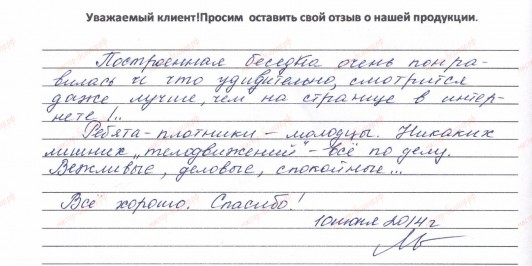 Уважаемый клиент!Просим оставить свой отзыв о нашей продукции.
Построенная беседка очень понра-
вилась и что удивительно, смотрится
даже лучше, чем на странице в интер-
нете!..
Ребята-плотники - молодцы. Никаких
лишних "телодвижений" - всё по делу.
Вежливые, деловые, спокойные...
Всё хорошо. Спасибо!
10 июня 2014 г